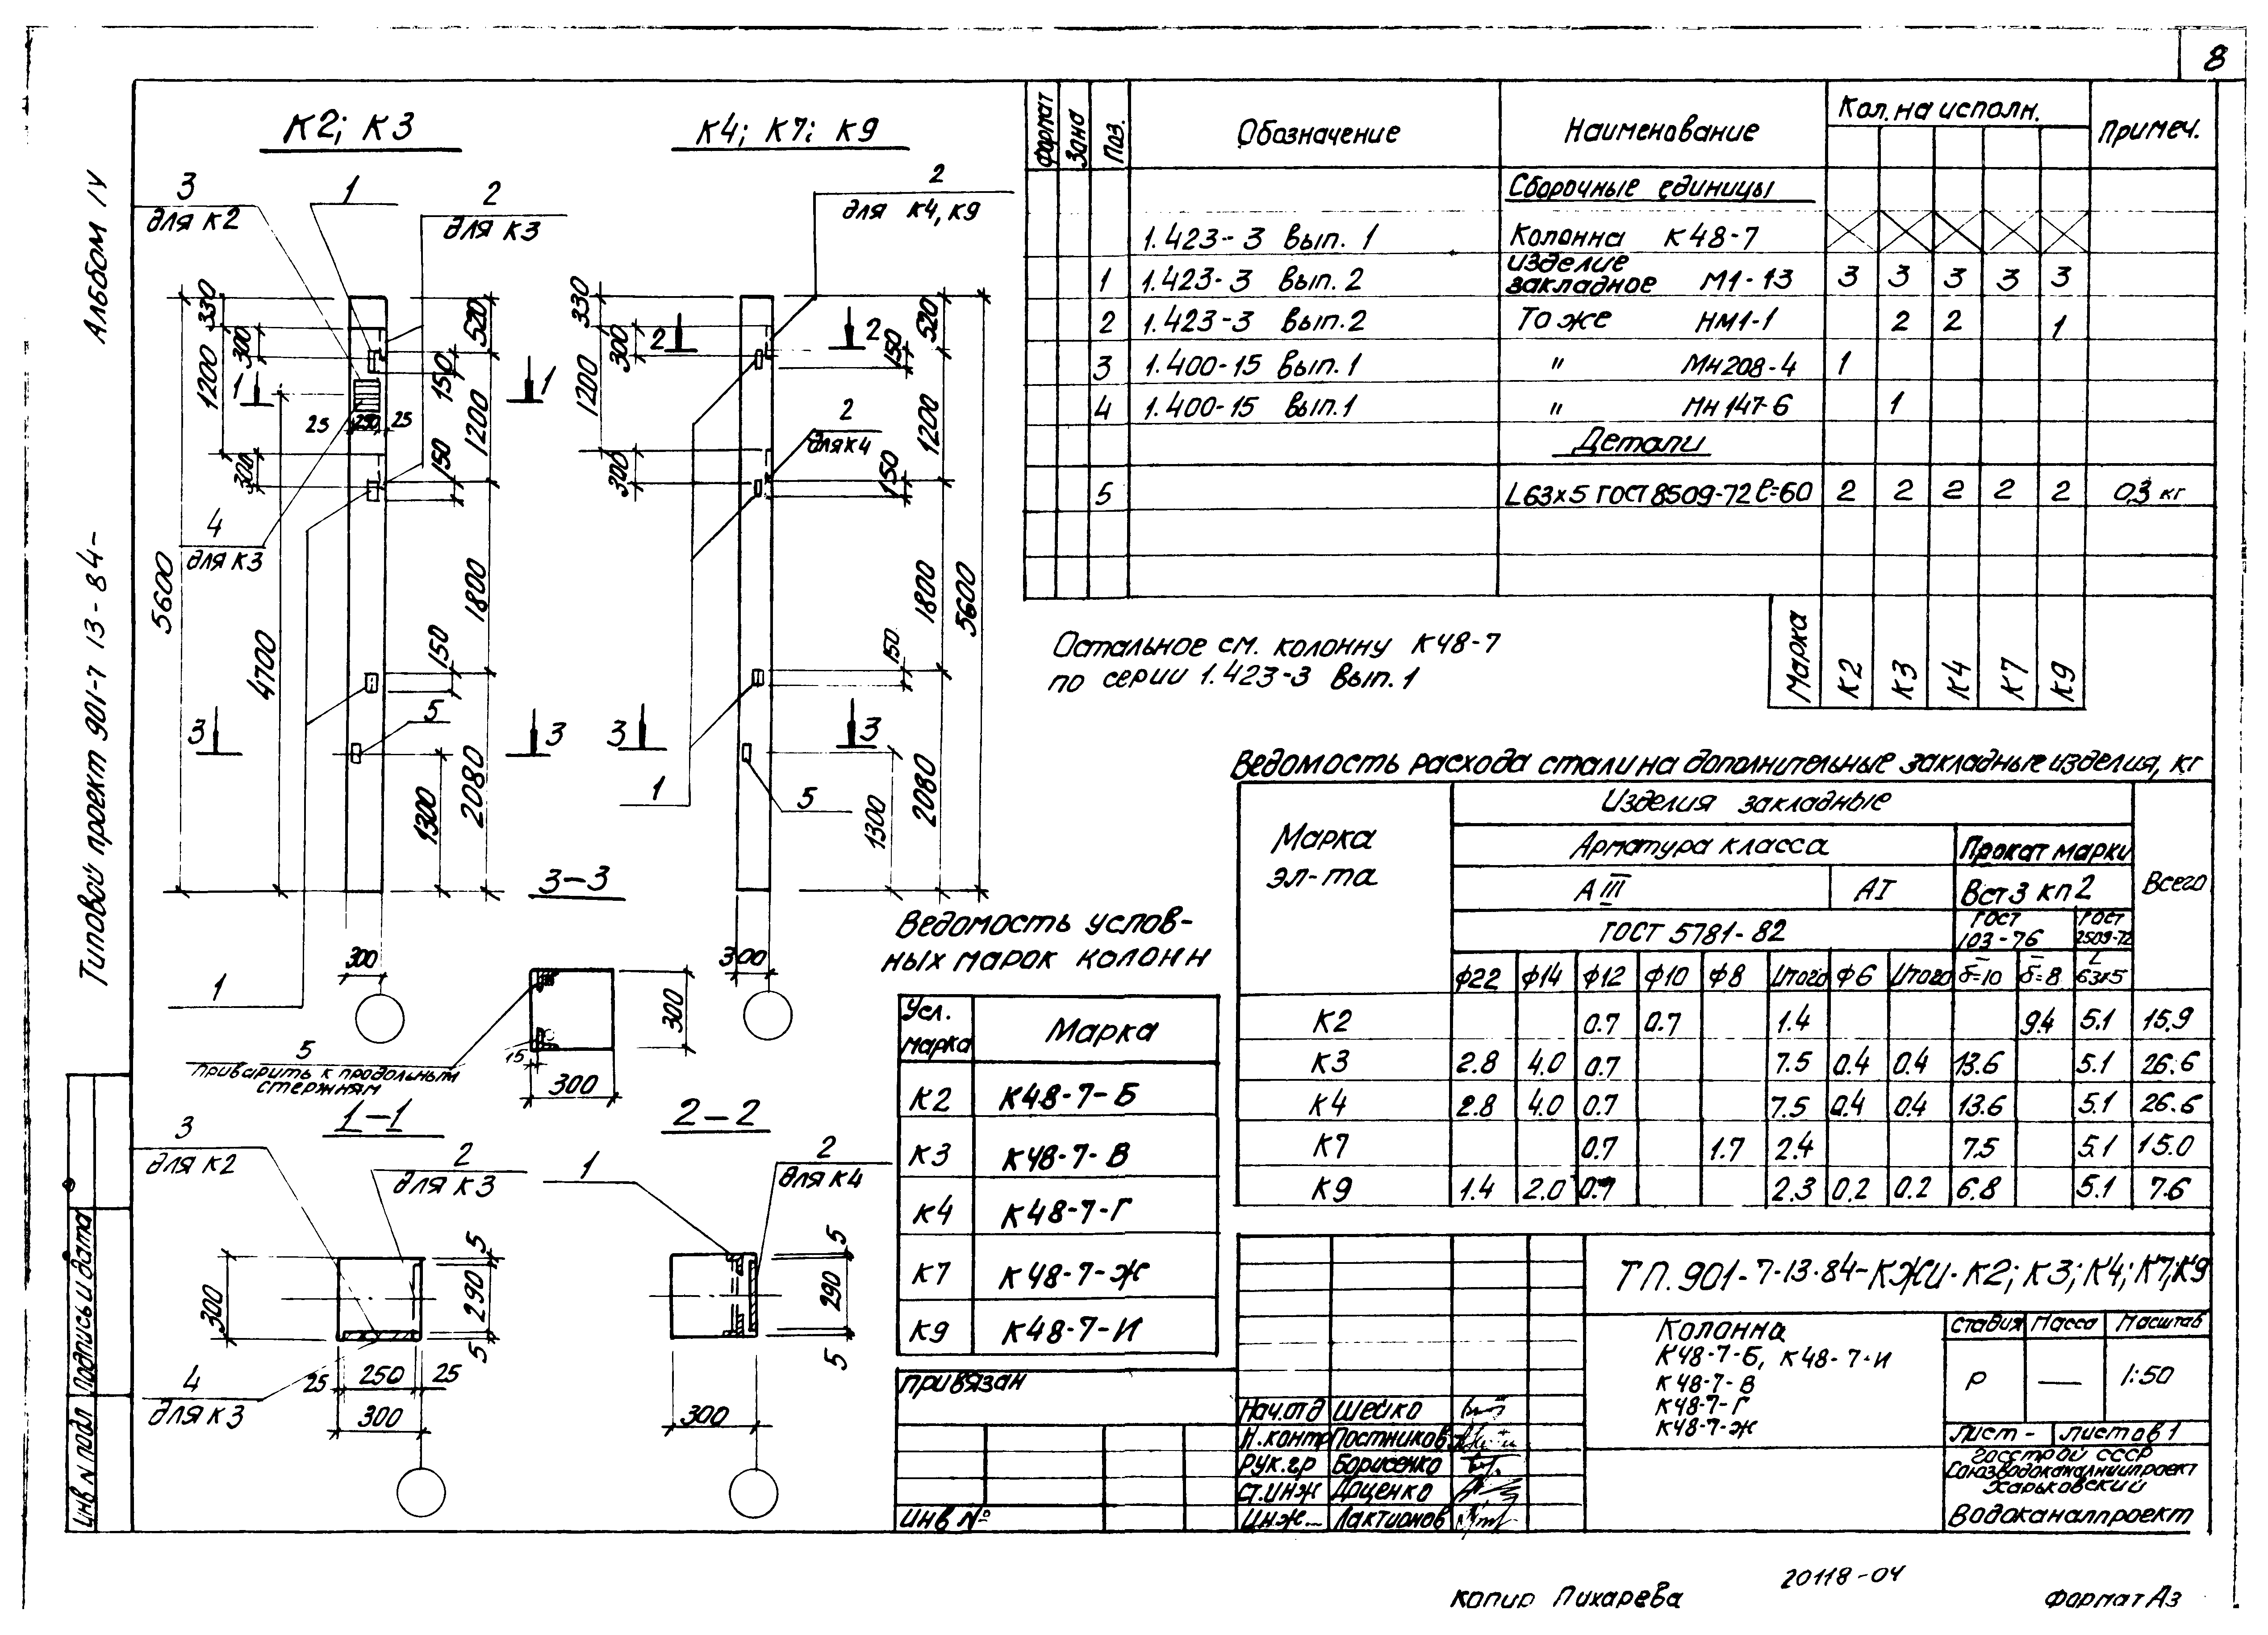 8
Альбом IV
Типовой проект 901-7 13-84-
Инв N подл
Подпись и дата
К2; К3
3
для К2
1
2
для К3
330
300
1200
1
25 250 25
300
4
для К3
5600
4700
520
150
1200
150
1800
150
5
3 3
2080
1300
1
300
К4; К7; К9
2
для К4, К9
330
300
1200
2 2
520
150
1200
2
для К4
300
150
1800
5600
150
3 3
1
5
2080
1300
300
3-3
300
15
300
5
приварить к продольным
стержням
1-1
3
для К2
2
для К3
300
5
290
5
25 250 25
300
4
для К3
2-2
1
2
для К4
5
290
5
300
Формат Зона Поз. Обозначение Наименование Кол. на исполн. Примеч.
Сборочные единицы
1.423-3 Вып. 1 Колонна К48-7
1 1.423-3 Вып. 2 изделие закладное М1-13 3 3 3 3 3
2 1.423-3 Вып.2 То же НМ1-1 2 2 1
3 1.400-15 Вып.1 " Мн208-4 1
4 1.400-15 Вып.1 " Мн147-6 1
Детали
5 L63х5 ГОСТ 8509-72 ℓ=60 2 2 2 2 2 0,3 кг
Марка К2 К3 К4 К7 К9
Остальное см. колонну К48-7
по серии 1.423-3 Вып.1
Ведомость расхода стали на дополнительные закладные изделия, кг
Марка эл-та
Изделия закладные
Всего
Арматура класса Прокат марки
АIII АI Вст3 кп2
ГОСТ 5781-82 ГОСТ 103-76 ГОСТ 2509-72
ф22 ф14 ф12 ф10 ф8 Итого ф6 Итого δ=10 δ=8 L 63х5
К2 0.7 0.7 1.4 9.4 5.1 15.9
К3 2.8 4.0 0.7 7.5 0.4 0.4 13.6 5.1 26.6
К4 2.8 4.0 0.7 7.5 0.4 0.4 13.6 5.1 26.6
К7 0.7 1.7 2.4 7.5 5.1 15.0
К9 1.4 2.0 0.7 2.3 0.2 0.2 6.8 5.1 7.6
Ведомость услов-
ных марок колонн
Усл. марка Марка
К2 К48-7-Б
К3 К48-7-В
К4 К48-7-Г
К7 К48-7-Ж
К9 К48-7-И
привязан
инв №
ТП.901-7-13-84-КЖИ-К2; К3; К4; К7; К9
Колонна
К48-7-Б, К48-7-И
К48-7-В
К48-7-Г
К48-7-Ж
Стадия Масса Масштаб
Р — 1:50
Лист - Листов 1
Госстрой СССР
Союзводоканалниипроект
Харьковский
Водоканалпроект
Нач.отд Шейко
Н.контр Постников
Рук.гр Борисенко
Ст.инж Доценко
Инж. Лактионов
20118-04
копир Лихарева
Формат А3